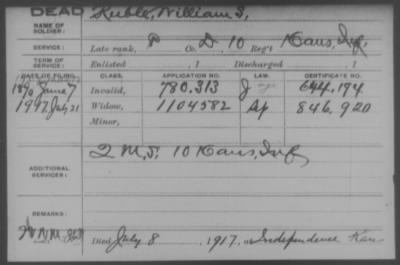 DEAD
NAME OF SOLDIER: Kuble, William S,
SERVICE: Late rank, P Co. D, 10 Reg't Kans, Inf,
TERM OF SERVICE: Enlisted , 1 Discharged , 1
DATE OF FILING. CLASS. APPLICATION NO. LAW. CERTIFICATE NO.
1890 June 7 Invalid, 780.313 J 644.194
1917. July 21 Widow, 1104582 Ap 846,920
Minor,
ADDITIONAL SERVICES: 2 M, S, 10 Kans, Inf
REMARKS:
Died July 8, 1917, at Independence Kan